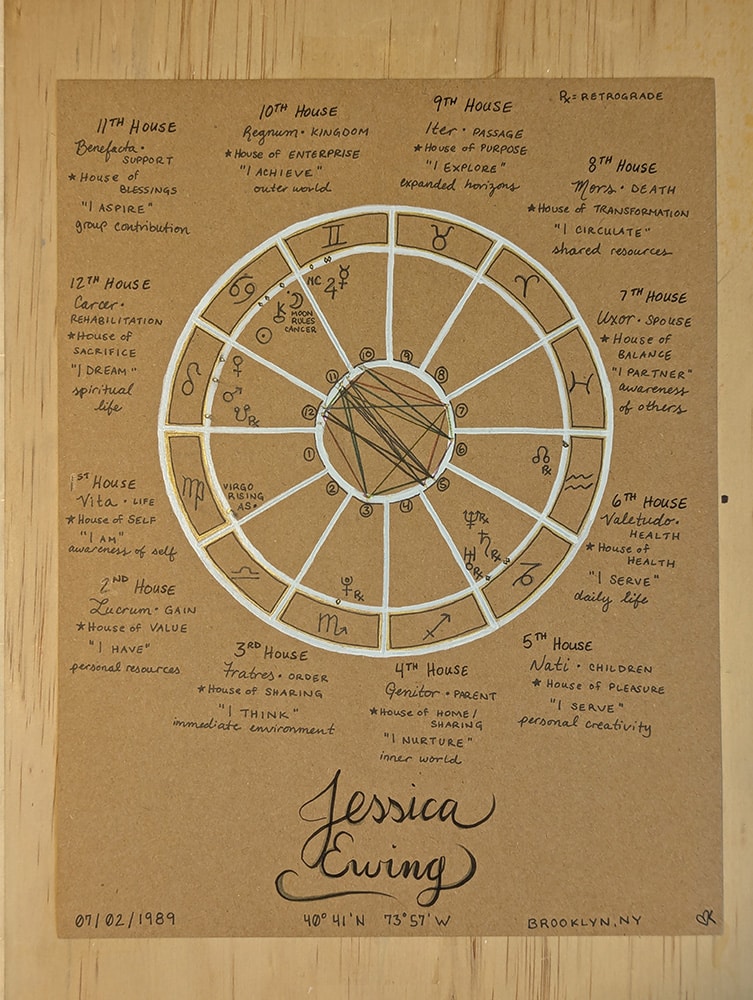 ℞ = RETROGRADE
11TH HOUSE
Benefacta ·
SUPPORT
★ House of
BLESSINGS
"I ASPIRE"
group contribution
10TH HOUSE
Regnum · KINGDOM
★ House of ENTERPRISE
"I ACHIEVE"
outer world
9TH HOUSE
Iter · PASSAGE
★ House of PURPOSE
"I EXPLORE"
expanded horizons
8TH HOUSE
Mors · DEATH
★ House of TRANSFORMATION
"I CIRCULATE"
shared resources
12TH HOUSE
Carcer ·
REHABILITATION
★ House of
SACRIFICE
"I DREAM"
spiritual
life
7TH HOUSE
Uxor · SPOUSE
★ House of
BALANCE
"I PARTNER"
awareness
of others
♊ ♉ ♈ ♓ ♒ ♑ ♐ ♏ ♎ ♍ ♌ ♋
MC ♃ ☿
☽
MOON
RULES
CANCER
⚷
☉
♀
♂
☋ ℞
VIRGO
RISING
AS.
♇ ℞
♆ ℞
♄ ℞
♅ ℞
☊
℞
1 2 3 4 5 6 7 8 9 10 11 12
1ST HOUSE
Vita · LIFE
★ House of SELF
"I AM"
awareness of self
6TH HOUSE
Valetudo ·
HEALTH
★ House of
HEALTH
"I SERVE"
daily life
2ND HOUSE
Lucrum · GAIN
★ House of VALUE
"I HAVE"
personal resources
3RD HOUSE
Fratres · ORDER
★ House of SHARING
"I THINK"
immediate environment
4TH HOUSE
Genitor · PARENT
★ House of HOME/
SHARING
"I NURTURE"
inner world
5TH HOUSE
Nati · CHILDREN
★ House of PLEASURE
"I SERVE"
personal creativity
Jessica
Ewing
07/02/1989
40° 41'N 73° 57' W
BROOKLYN, NY